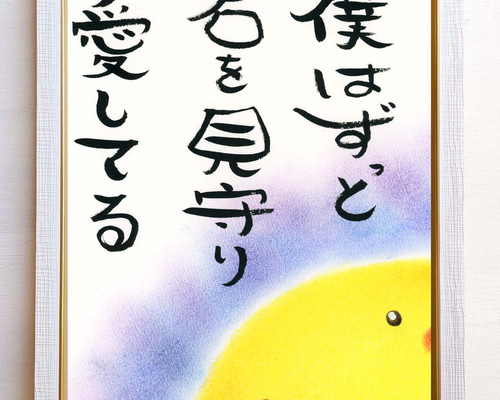 僕はずっと
を見守り
愛してる